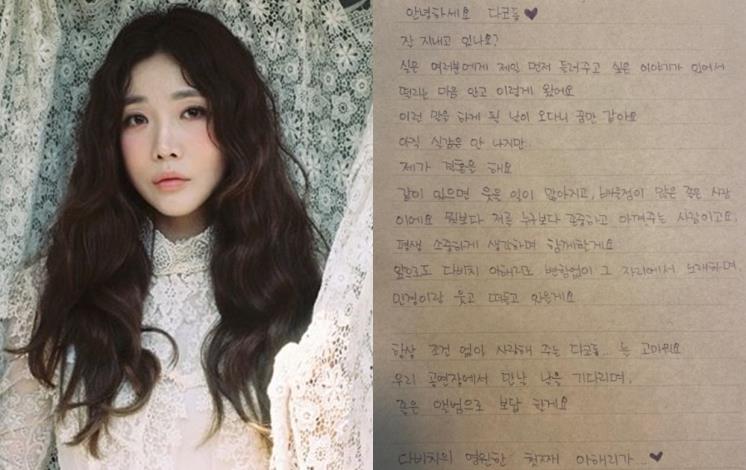 안녕하세요 다코들♥
잘 지내고 있나요?
실은 여러분에게 제일 먼저 들려주고 싶은 이야기가 있어서
떨리는 마음 안고 이렇게 왔어요
이런 말을 하게 될 날이 오다니 꿈만 같아요
아직 실감은 안 나지만..
제가 결혼을 해요
같이 있으면 웃을 일이 많아지고, 배울점이 많은 좋은 사람
이에요 뭣보다 저를 누구보다 존중하고 아껴주는 사람이고요,
평생 소중하게 생각하며 함께할게요
앞으로도 다비치 이해리도 변함없이 그 자리에서 노래하며,
민경이랑 웃고 떠들고 있을게요
항상 조건 없이 사랑해 주는 다코들.. 늘 고마워요
우리 공연장에서 만날 날을 기다리며,
좋은 앨범으로 보답 할게요
다비치의 영원한 첫째 이해리가.. ♥